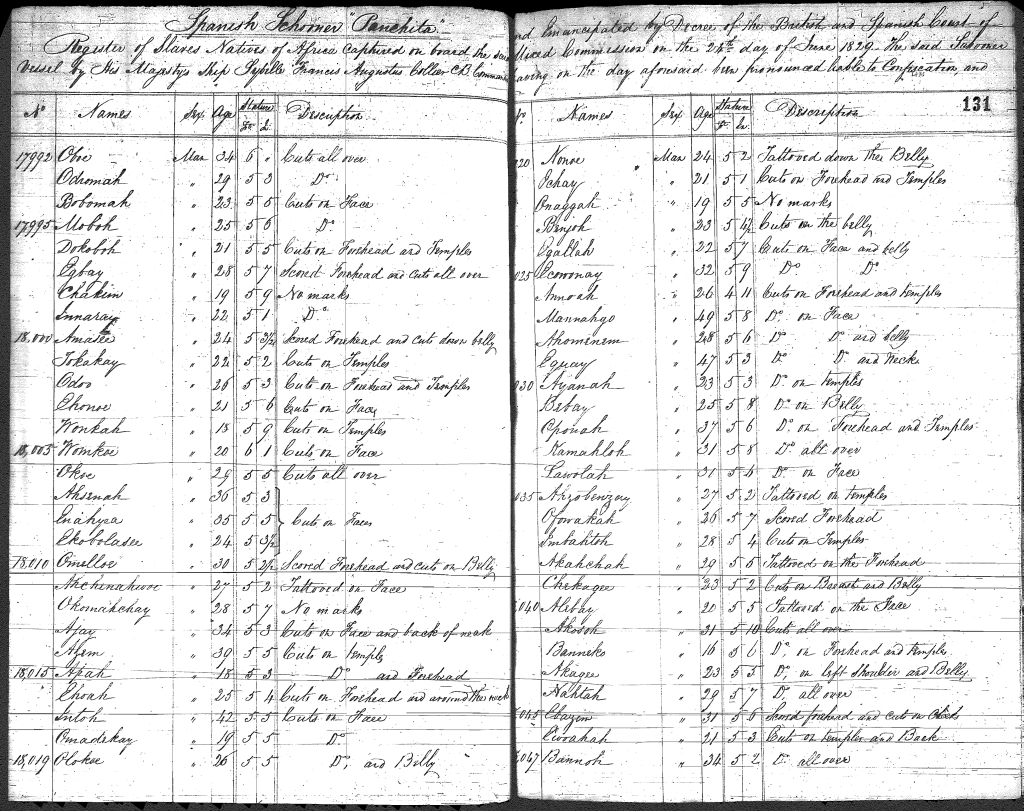 Spanish Schooner "Panchita"
Register of Slaves Natives of Africa captured on board the said
Vessel by His Majesty's Ship Sybelle Francis Augustus Collier CB
No Names Sex Age Stature Description
Ft In
17992 Oboe Man 34 6 " Cuts all over
Odromah " 29 5 3 Do
Bobomah " 23 5 5 Cuts on Face
17995 Moboh " 25 5 6 Do
Dokoboh " 21 5 5 Cuts on Forehead and Temples
Egbay " 28 5 7 Scored Forehead and cuts all over
Chakim " 19 5 9 No marks
Innaray " 22 5 1 Do
18,000 Amastee " 24 5 3½ Scored Forehead and cuts down belly
Tokakay " 22 5 2 Cuts on Temples
Odoo " 26 5 3 Cuts on Forehead and Temples
Ehonoe " 21 5 6 Cuts on Face
Wonkah " 18 5 9 Cuts on Temples
18,005 Womkoe " 20 6 1 Cuts on Face
Okoe " 29 5 5 Cuts all over
Ahsenah " 36 5 3
Enahyea " 35 5 5 Cuts on Faces
Ekobolasee " 24 5 3½
18,010 Omelloe " 30 5 2½ Scored Forehead and cuts on Belly
Akchenahwoe " 27 5 2 Tattooed on Face
Okomakchay " 28 5 7 No marks
Ajay " 34 5 3 Cuts on Face and back of neck
Ajem " 39 5 5 Cuts on Temples
18,015 Apah " 18 5 3 Do and Forehead
Ehoah " 25 5 4 Cuts on Forehead and around the neck
Intoh " 42 5 5 Cuts on Face
Omadekay " 19 5 5 Do
18,019 Olokoe " 26 5 5 Do, and Belly
nd Emancipated by Decree of the British and Spanish Court of
Mixed Commission on the 24th day of June 1829. The said Schooner
having on the day aforesaid been pronounced liable to Confiscation, and
131
No Names Sex Age Stature Description
Ft In
020 Nonoe Man 24 5 2 Tattooed down the Belly
Ochay " 21 5 1 Cuts on Forehead and Temples
Onaggah " 19 5 5 No marks
Benjoh " 23 5 1½ Cuts on the belly
Egallah " 22 5 7 Cuts on Face and belly
025 Ecowonay " 32 5 9 Do Do
Annoah " 26 4 11 Cuts on Forehead and temples
Mannahgo " 49 5 8 Do on Face
Ahominem " 28 5 6 Do Do and belly
Eguay " 47 5 3 Do Do and Neck
030 Ayanah " 23 5 3 Do on temples
Bebay " 25 5 8 Do on Belly
Chonah " 37 5 6 Do on Forehead and Temples
Kamahloh " 31 5 8 Do all over
Lawolah " 31 5 4 Do on Face
035 Ahzobewzoy " 27 5 2 Tattooed on temples
Ofowakah " 26 5 7 Scored Forehead
Imbahtoh " 28 5 4 Cuts on Temples
Akahchah " 29 5 5 Tattooed on the Forehead
Chekagee " 23 5 2 Cuts on Breast and Belly
040 Alebay " 20 5 5 Tattooed on the Face
Akosoh " 31 5 10 Cuts all over
Banneko " 16 5 6 Do on Forehead and temples
Akagee " 23 5 5 Do, on left Shoulder and Belly
Nahtah " 29 5 7 Do all over
045 Ebayim " 31 5 6 Scored forehead and cuts on
Ewoahah " 21 5 3 Cuts on temples and Back
047 Bannoh " 34 5 2 Do all over